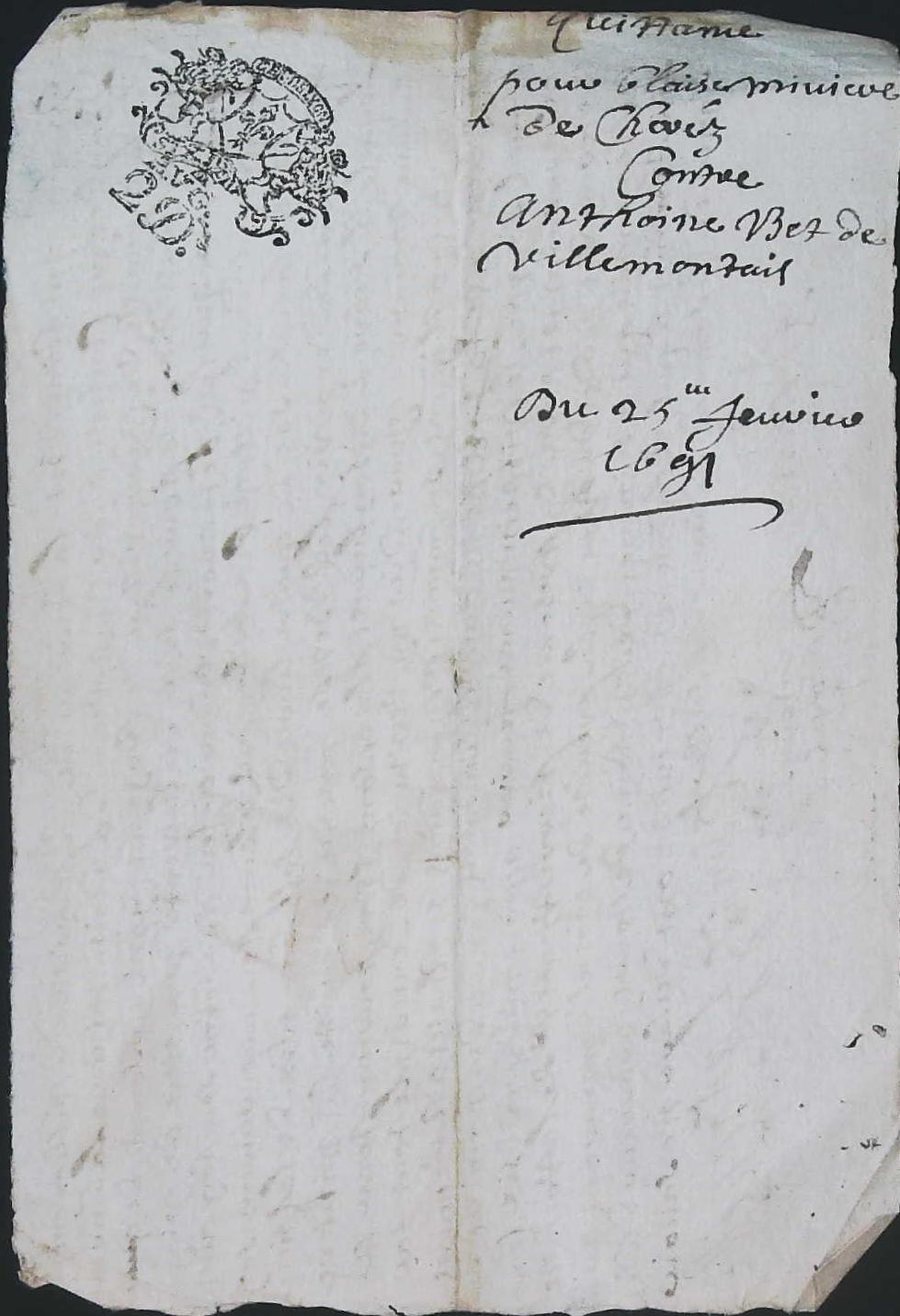 Quittance
pour blaise miniere
De Cheréz
Contre
Anthoine Bet de
Villemontais
Du 25me Jenvier
1691